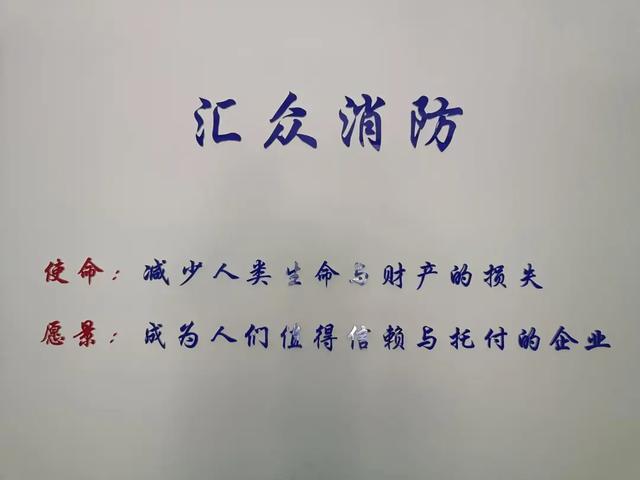 汇众消防
使命：减少人类生命与财产的损失
愿景：成为人们值得信赖与托付的企业